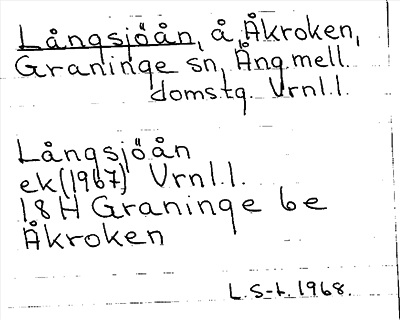 Långsjöån, å, Åkroken,
Graninge sn, Ång.mell.
domstg. Vrnl.l.
Långsjöån
ek(1967) Vrnl.l.
18H Graninge 6e
Åkroken
L.S-t. 1968.